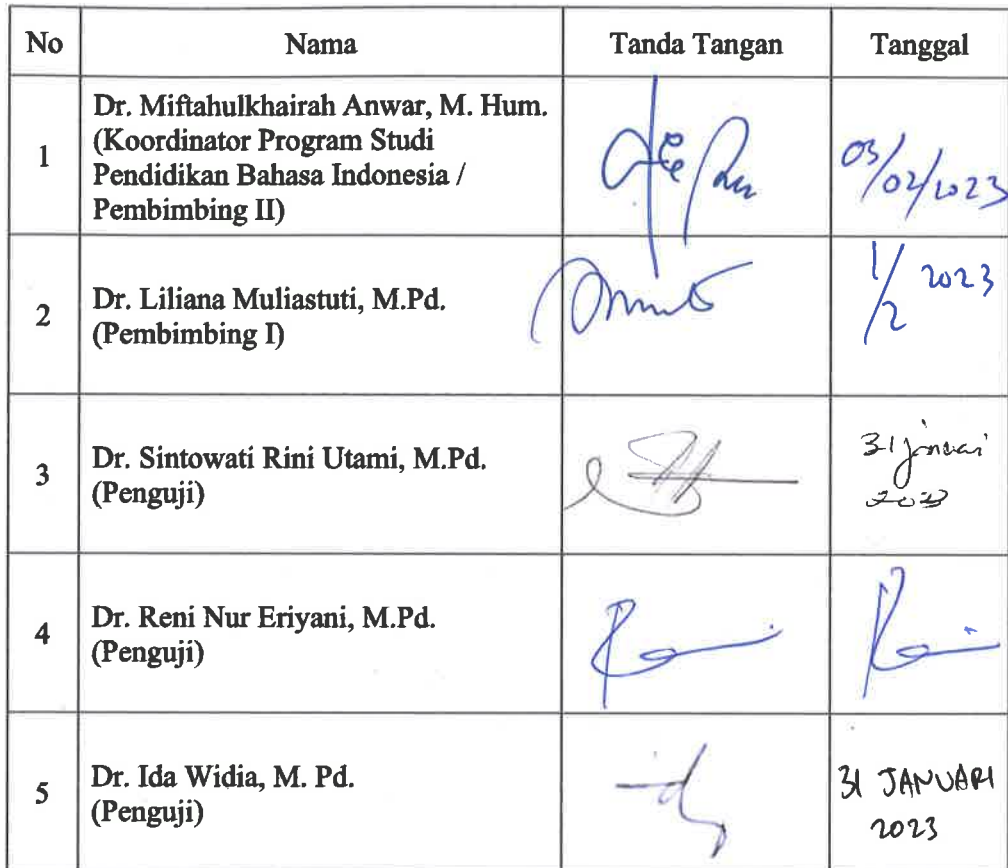 No Nama Tanda Tangan Tanggal
1 Dr. Miftahulkhairah Anwar, M. Hum.
(Koordinator Program Studi
Pendidikan Bahasa Indonesia /
Pembimbing II)
03/02/2023
2 Dr. Liliana Muliastuti, M.Pd.
(Pembimbing I)
1/2 2023
3 Dr. Sintowati Rini Utami, M.Pd.
(Penguji)
31 januari
2023
4 Dr. Reni Nur Eriyani, M.Pd.
(Penguji)
5 Dr. Ida Widia, M. Pd.
(Penguji)
31 JANUARI
2023